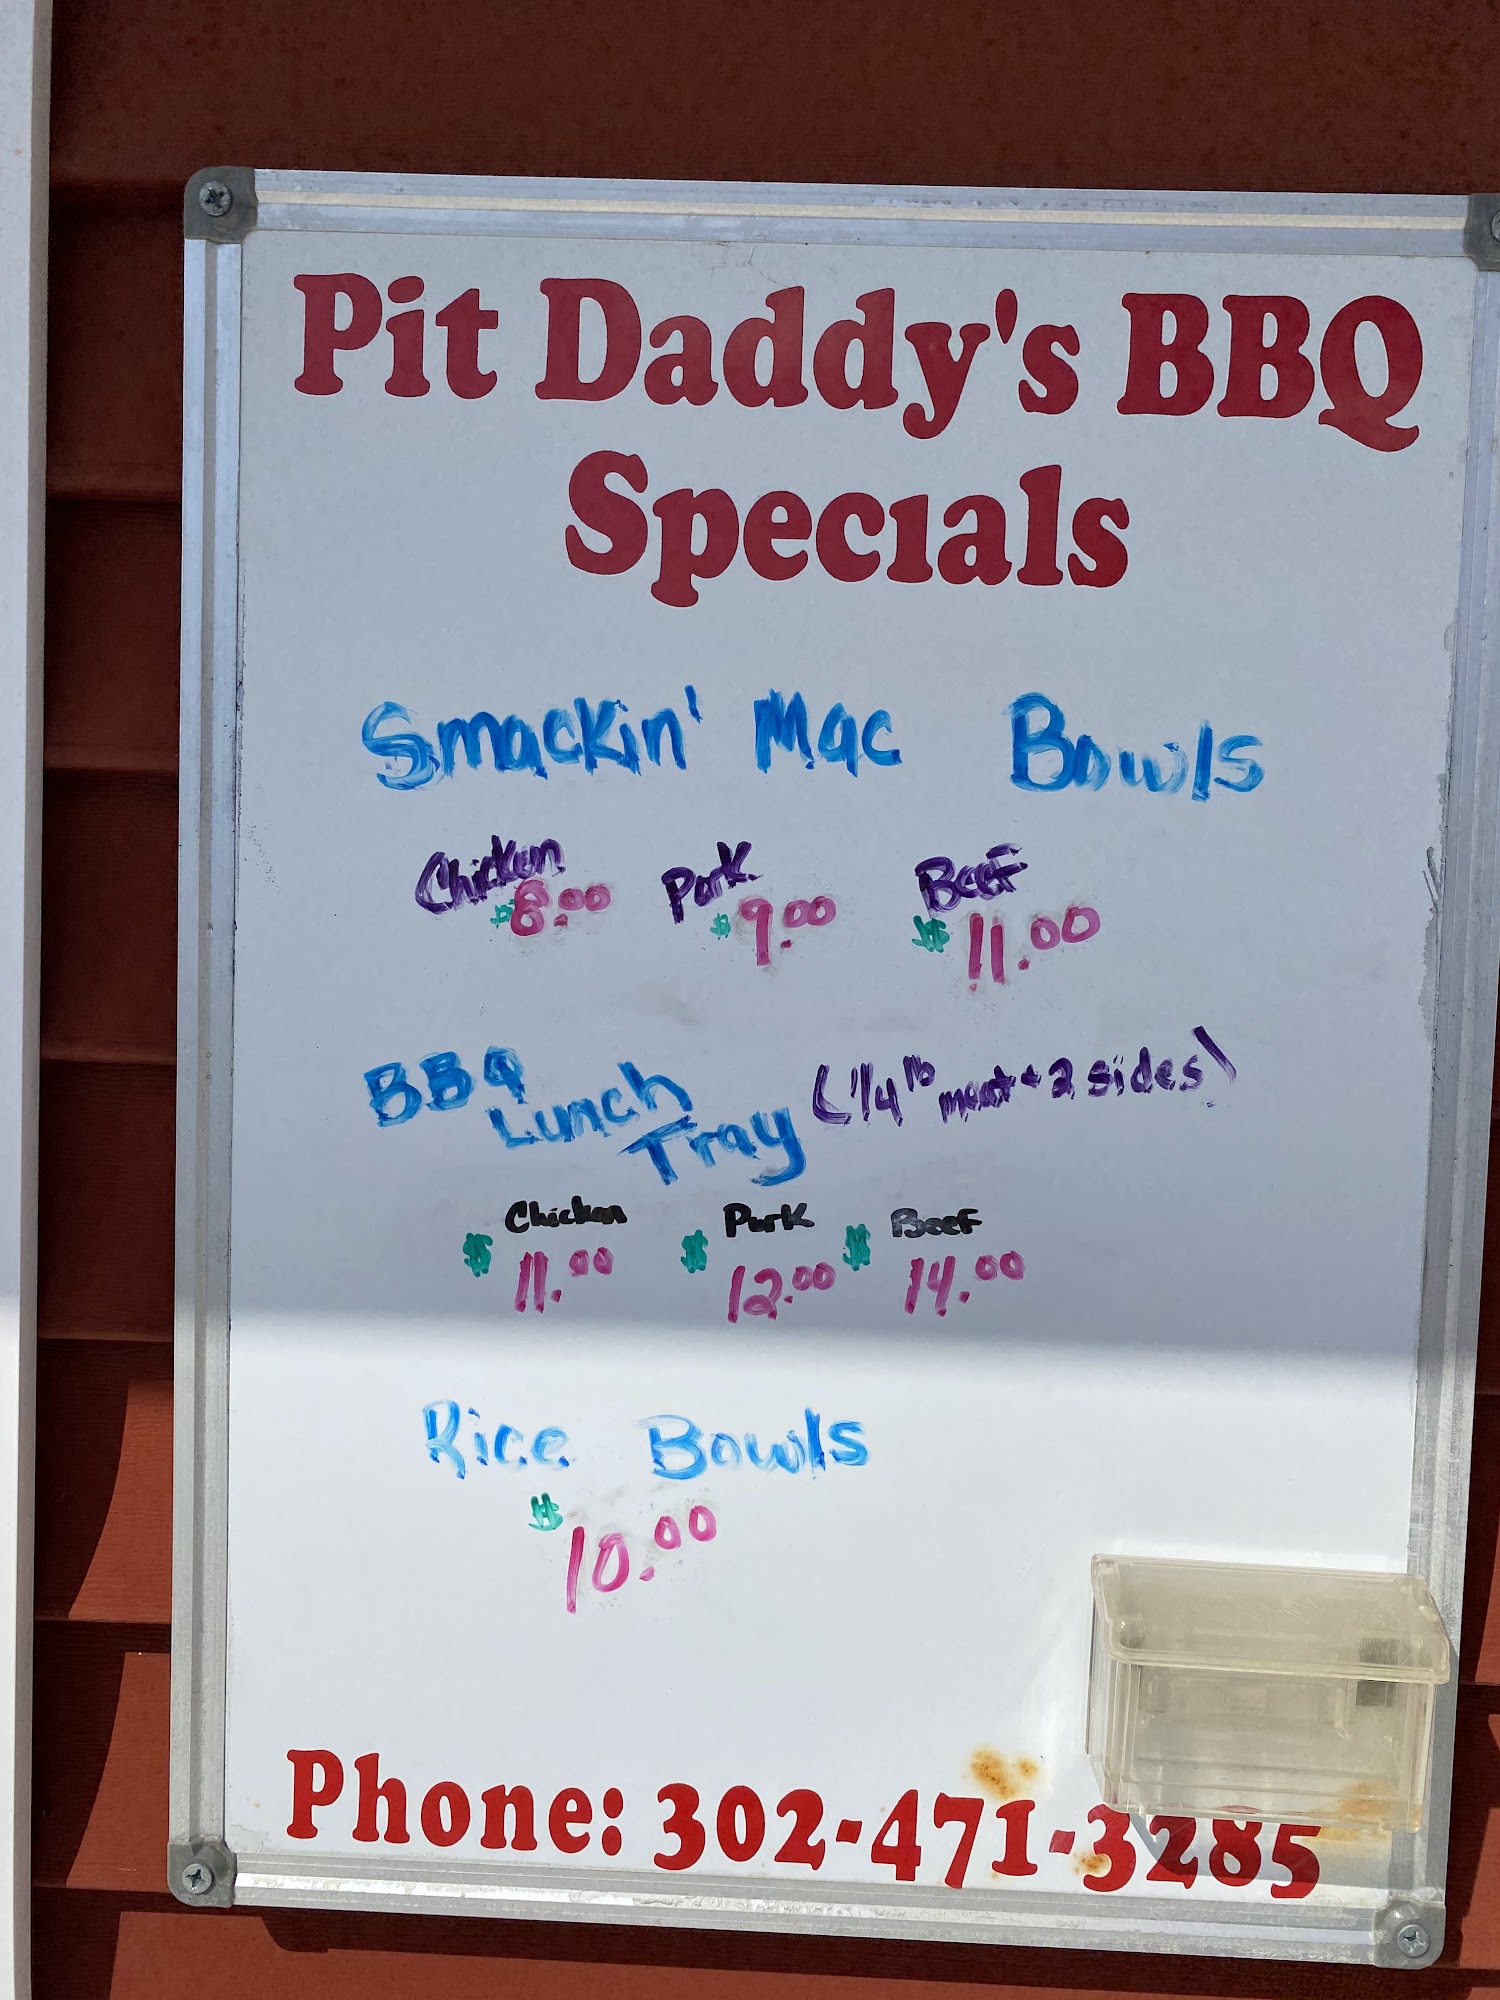 Pit Daddy's BBQ
Specials
Smackin' Mac Bowls
Chicken Pork Beef
$8.00 $9.00 $11.00
BBQ Lunch Tray (1/4 lb meat + 2 sides)
Chicken Pork Beef
$11.00 $12.00 $14.00
Rice Bowls
$10.00
Phone: 302-471-3285